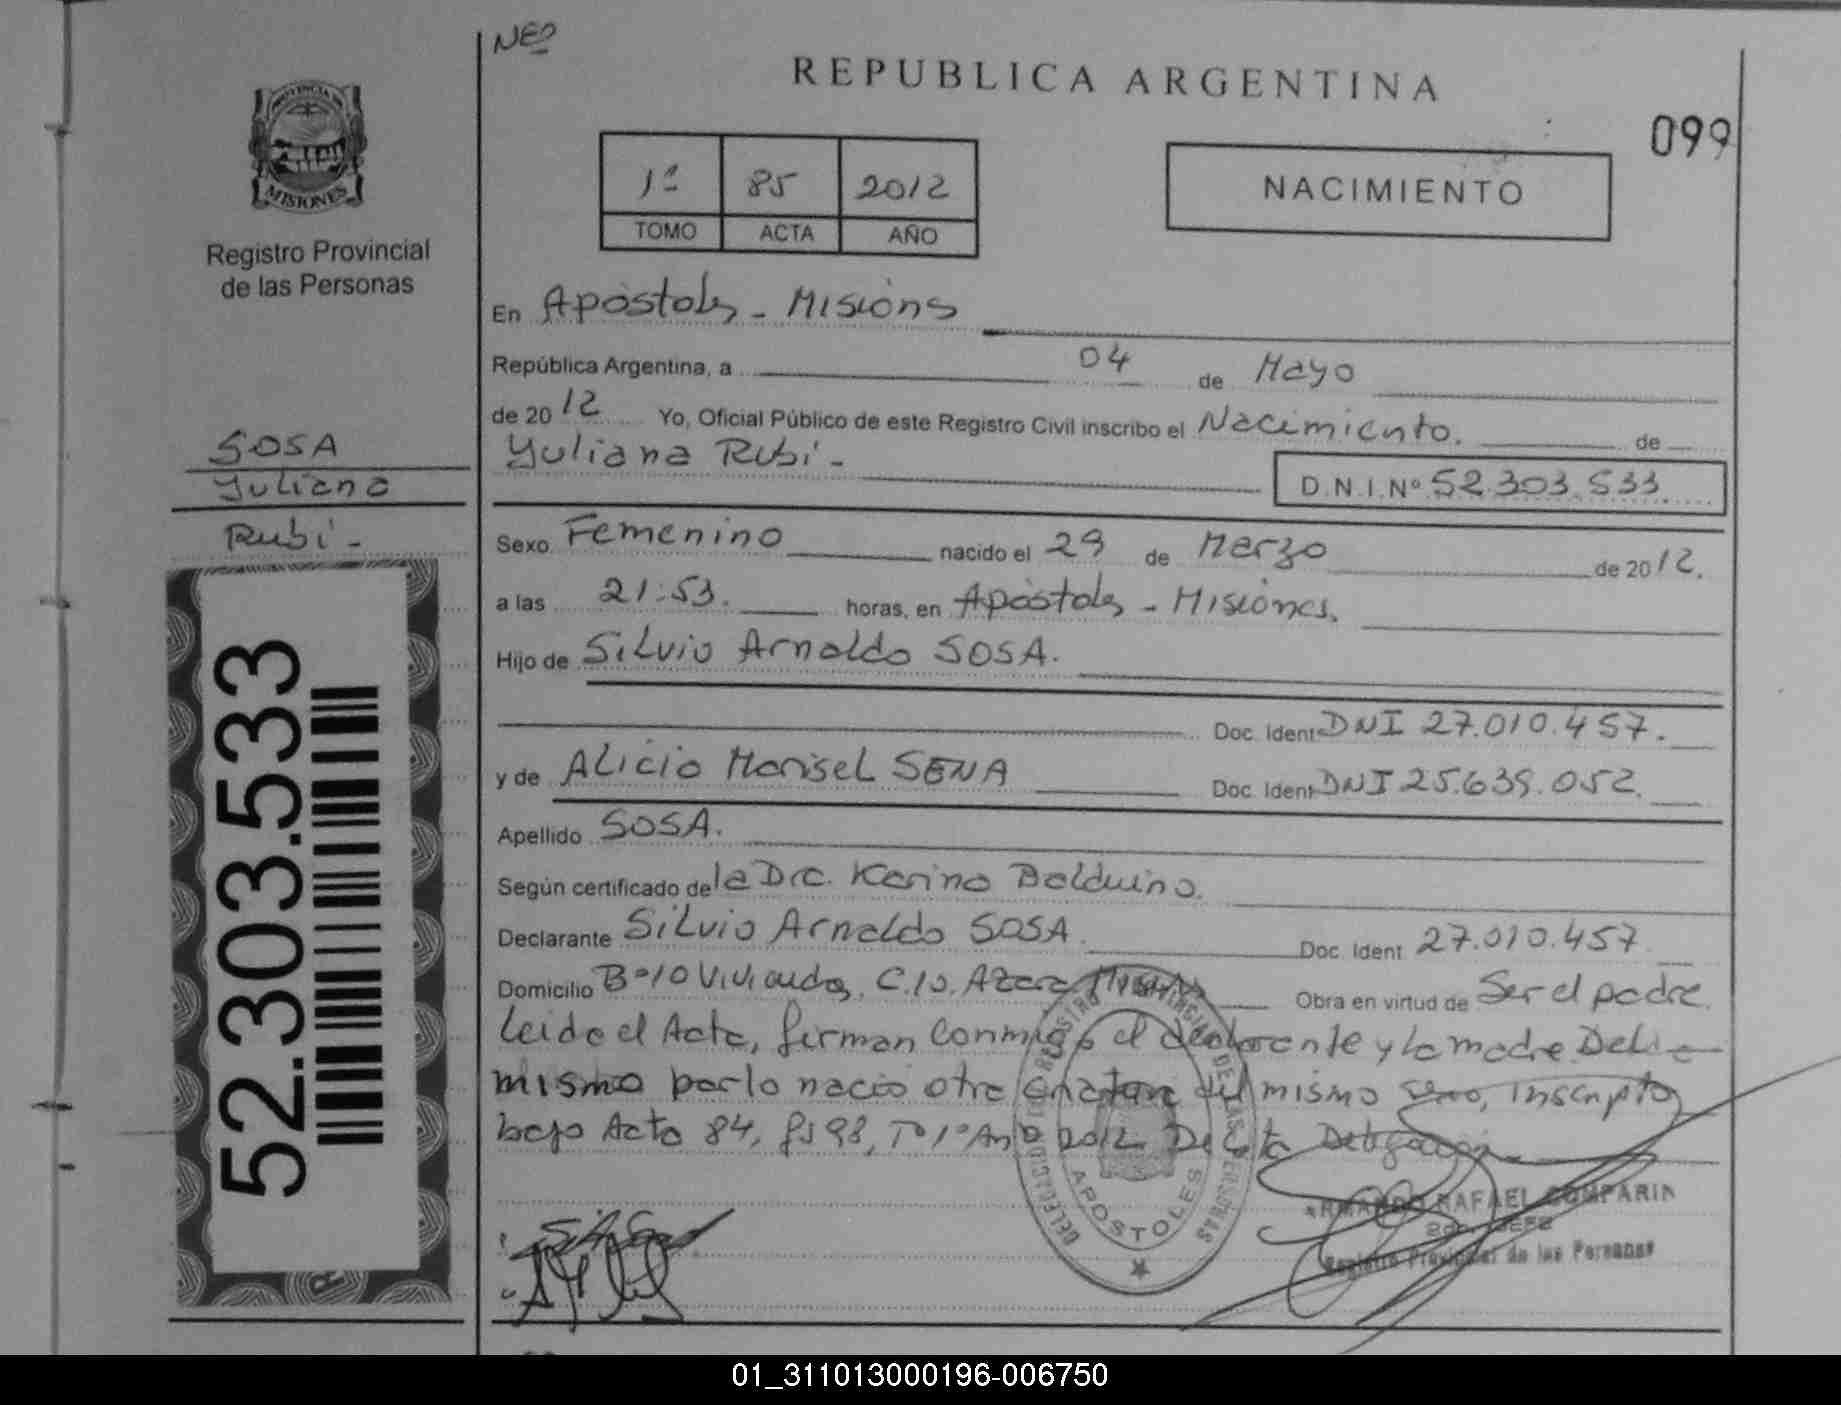 NEO
REPUBLICA ARGENTINA
099
1º 85 2012
TOMO ACTA AÑO
NACIMIENTO
MISIONES
Registro Provincial
de las Personas
SOSA
Yuliana
Rubí -
52.303.533
En Apóstoles - Misiones
República Argentina, a 04 de Mayo
de 2012 Yo, Oficial Público de este Registro Civil inscribo el Nacimiento. de
Yuliana Rubí -
D.N.I.Nº 52.303.533
Sexo Femenino nacido el 29 de Marzo de 2012.
a las 21:53. horas, en Apóstoles - Misiones,
Hijo de Silvio Arnaldo SOSA.
Doc. Ident DNI 27.010.457.
y de Alicia Marisel SENA Doc. Ident DNI 25.639.052.
Apellido SOSA.
Según certificado de la Dra. Karina Balduino.
Declarante Silvio Arnaldo SOSA. Doc. Ident 27.010.457
Domicilio Bº 10 Viviendas, C.10. Azara Misiones Obra en virtud de Ser el padre.
Leida el Acta, firman conmigo el declarante y la madre Del
mismo parto nació otra del mismo sexo, inscripta
bajo Acta 84, fs 98, Tº 1º Año 2012 De esta Delegación.
DELEGACION REGISTRO PROVINCIAL DE LAS PERSONAS
APOSTOLES
ARMANDO RAFAEL COMPARIN
2do. JEFE
Registro Provincial de las Personas
01_311013000196-006750